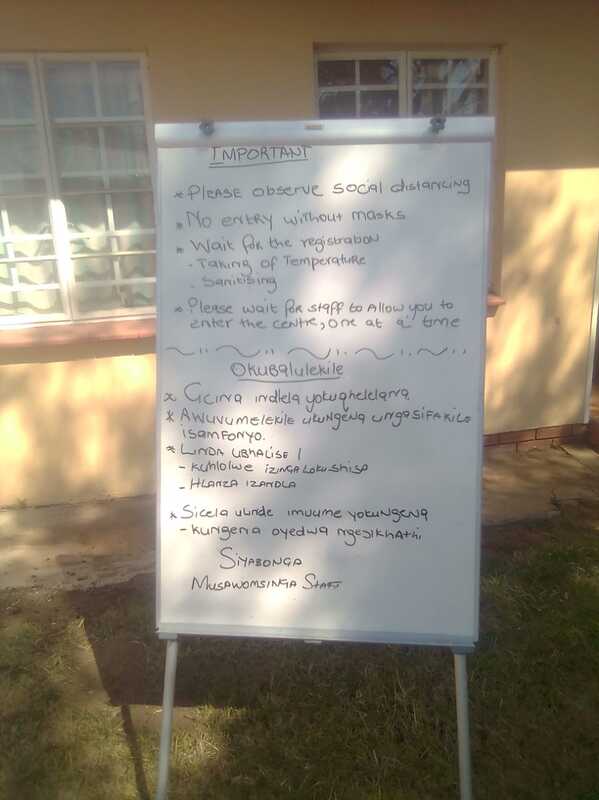 IMPORTANT
* PLEASE observe social distancing
* NO entry without masks
* Wait for the registration
- Taking of Temperature
- Sanitising
* Please wait for staff to allow you to
enter the centre, one at a time
Okubalulekile
* Gcina indlela yokuqhelelana
* AWUVUMELEKILE UKUNGENA UNGASIFAKILE
ISAMFONYO.
* LINDA UBHALISE /
- KUHLOLWE IZINGA LOKUSHISA
- HLANZA IZANDLA
* Sicela ulinde imvume yokungena
- kungena oyedwa ngesikhathi
SIYABONGA
MUSAWOMSINGA STAFF